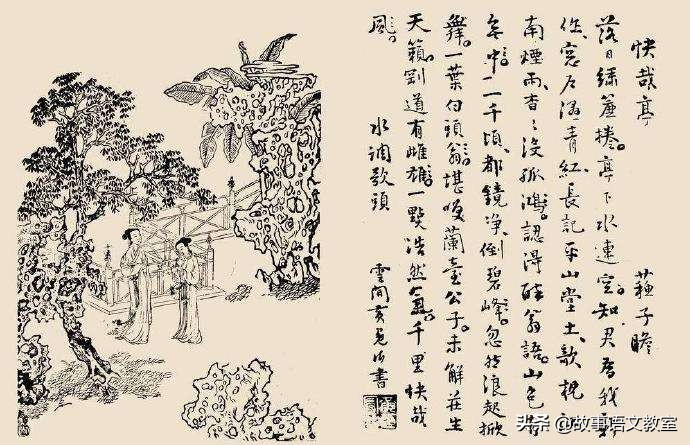 快哉亭 蘇子瞻
落日繡簾捲。亭下水連空。知君爲我新
作。窓户濕青紅。長記平山堂上。欹枕江
南煙雨。杳々没孤鴻。認得醉翁語。山色有
無中。一千頃。都鏡净。倒碧峰。忽然浪起掀
舞。一葉白頭翁。堪笑蘭臺公子。未解莊生
天籟。剛道有雌雄。一點浩然氣。千里快哉
風。
水調歌頭
雲間黄冕仲書
头条 @故事语文教室